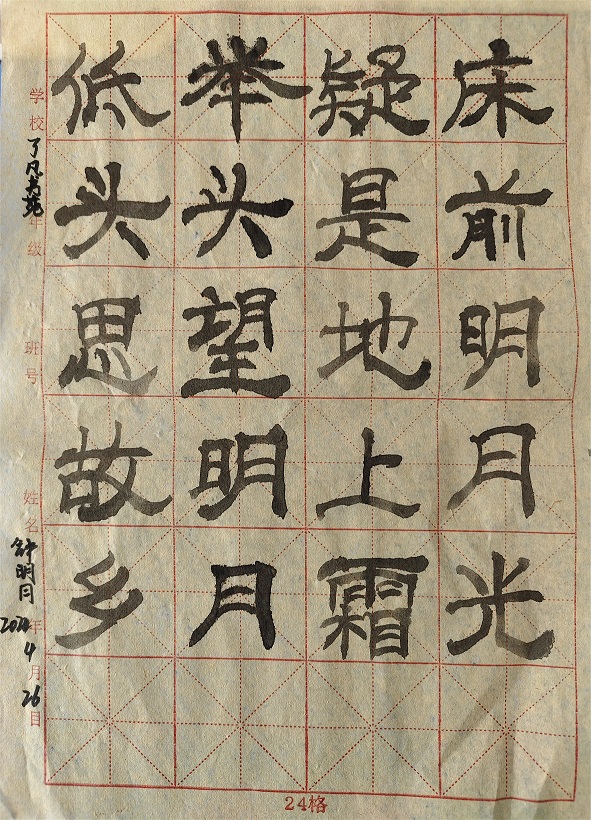 床前明月光
疑是地上霜
举头望明月
低头思故乡
学校 了凡书苑
年级
班号
姓名 钟明月
年4月26日
24格